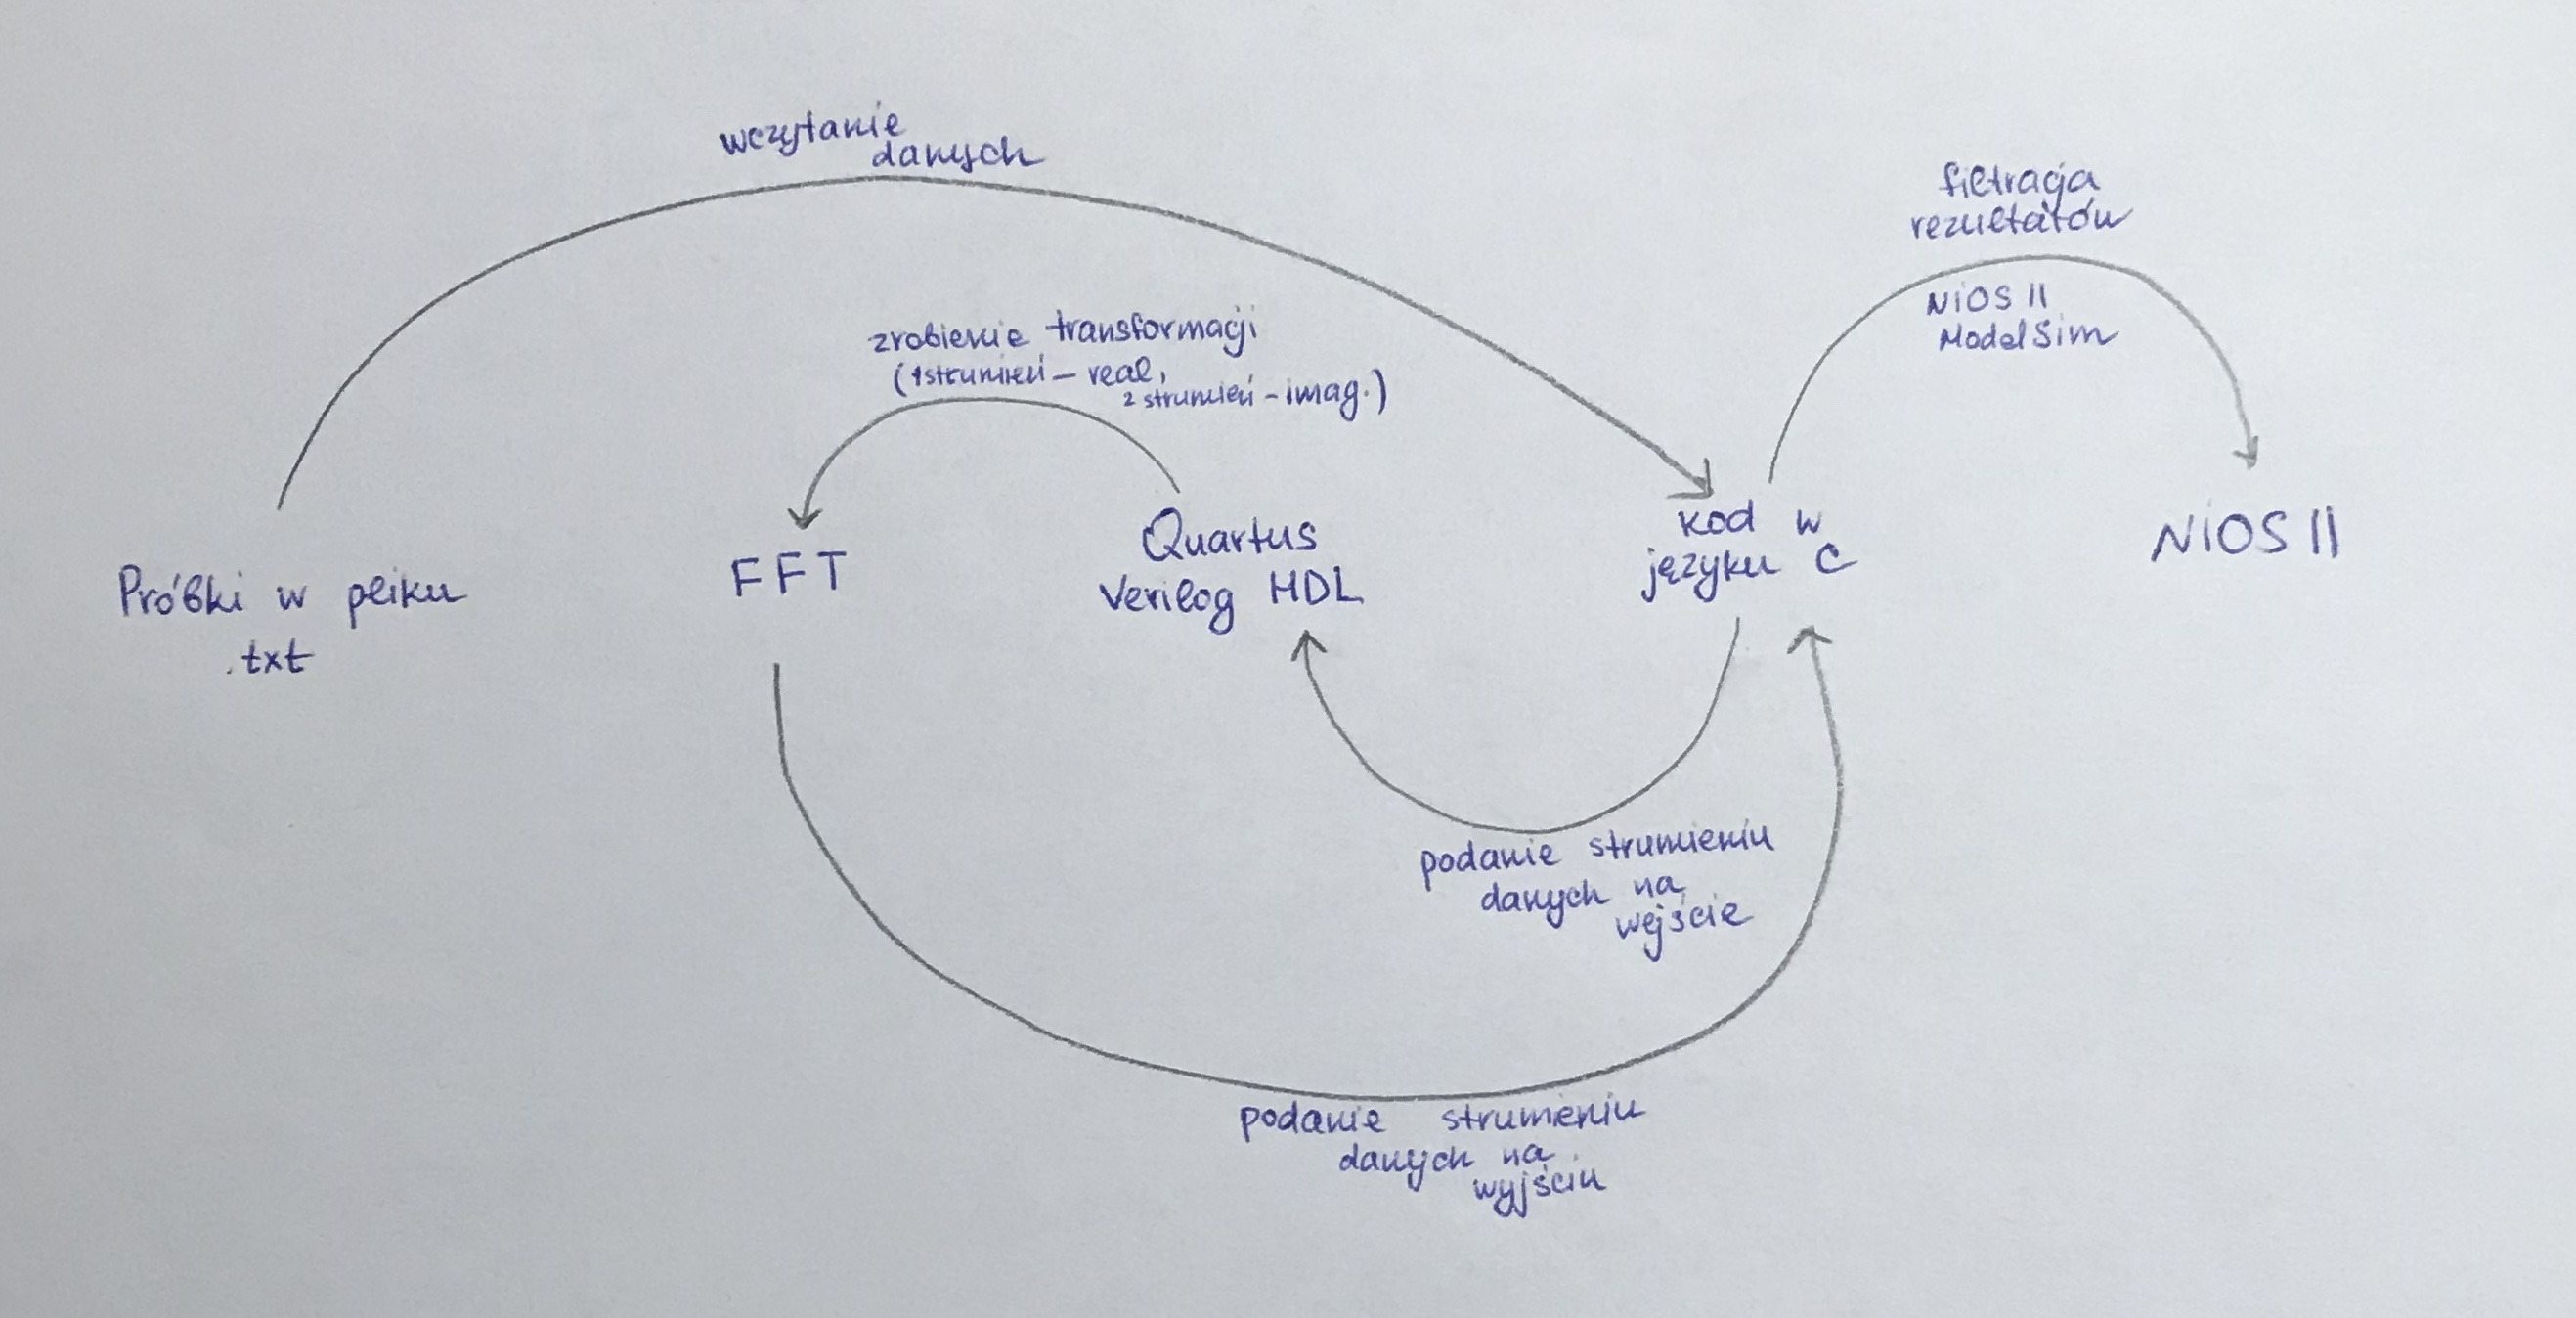 wczytanie
danych
filtracja
rezultatów
NIOS II
ModelSim
zrobienie transformacji
(1strumień – real,
2 strumień – imag.)
Próbki w pliku
.txt
FFT
Quartus
Verilog HDL
kod w
języku C
NIOS II
podanie strumieniu
danych na
wejście
podanie strumieniu
danych na
wyjściu